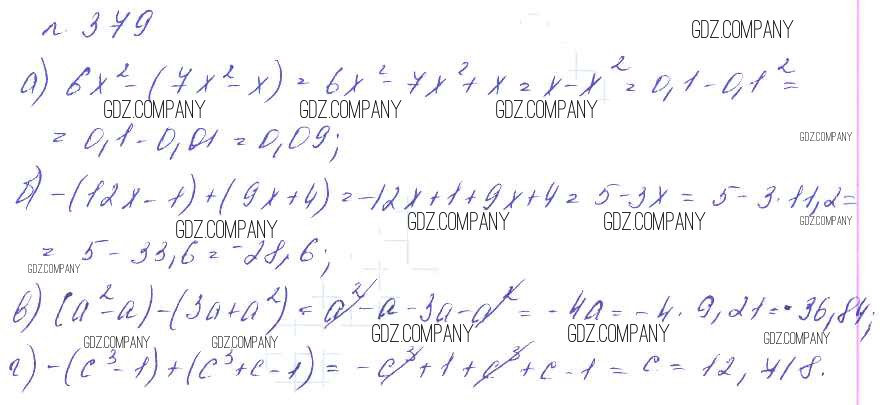 н. 379
GDZ.COMPANY
а) 6x² - (7x² - x) = 6x² - 7x² + x = x - x² = 0,1 - 0,1² =
GDZ.COMPANY GDZ.COMPANY GDZ.COMPANY
= 0,1 - 0,01 = 0,09;
GDZ.COMPANY
б) -(12x - 1) + (9x + 4) = -12x + 1 + 9x + 4 = 5 - 3x = 5 - 3·11,2 =
GDZ.COMPANY GDZ.COMPANY GDZ.COMPANY GDZ.COMPANY
= 5 - 33,6 = -28,6;
GDZ.COMPANY
в) (a² - a) - (3a + a²) = a² - a - 3a - a² = -4a = -4·9,21 = -36,84;
GDZ.COMPANY GDZ.COMPANY GDZ.COMPANY GDZ.COMPANY GDZ.COMPANY
г) -(c³ - 1) + (c³ + c - 1) = -c³ + 1 + c³ + c - 1 = c = 12,718.